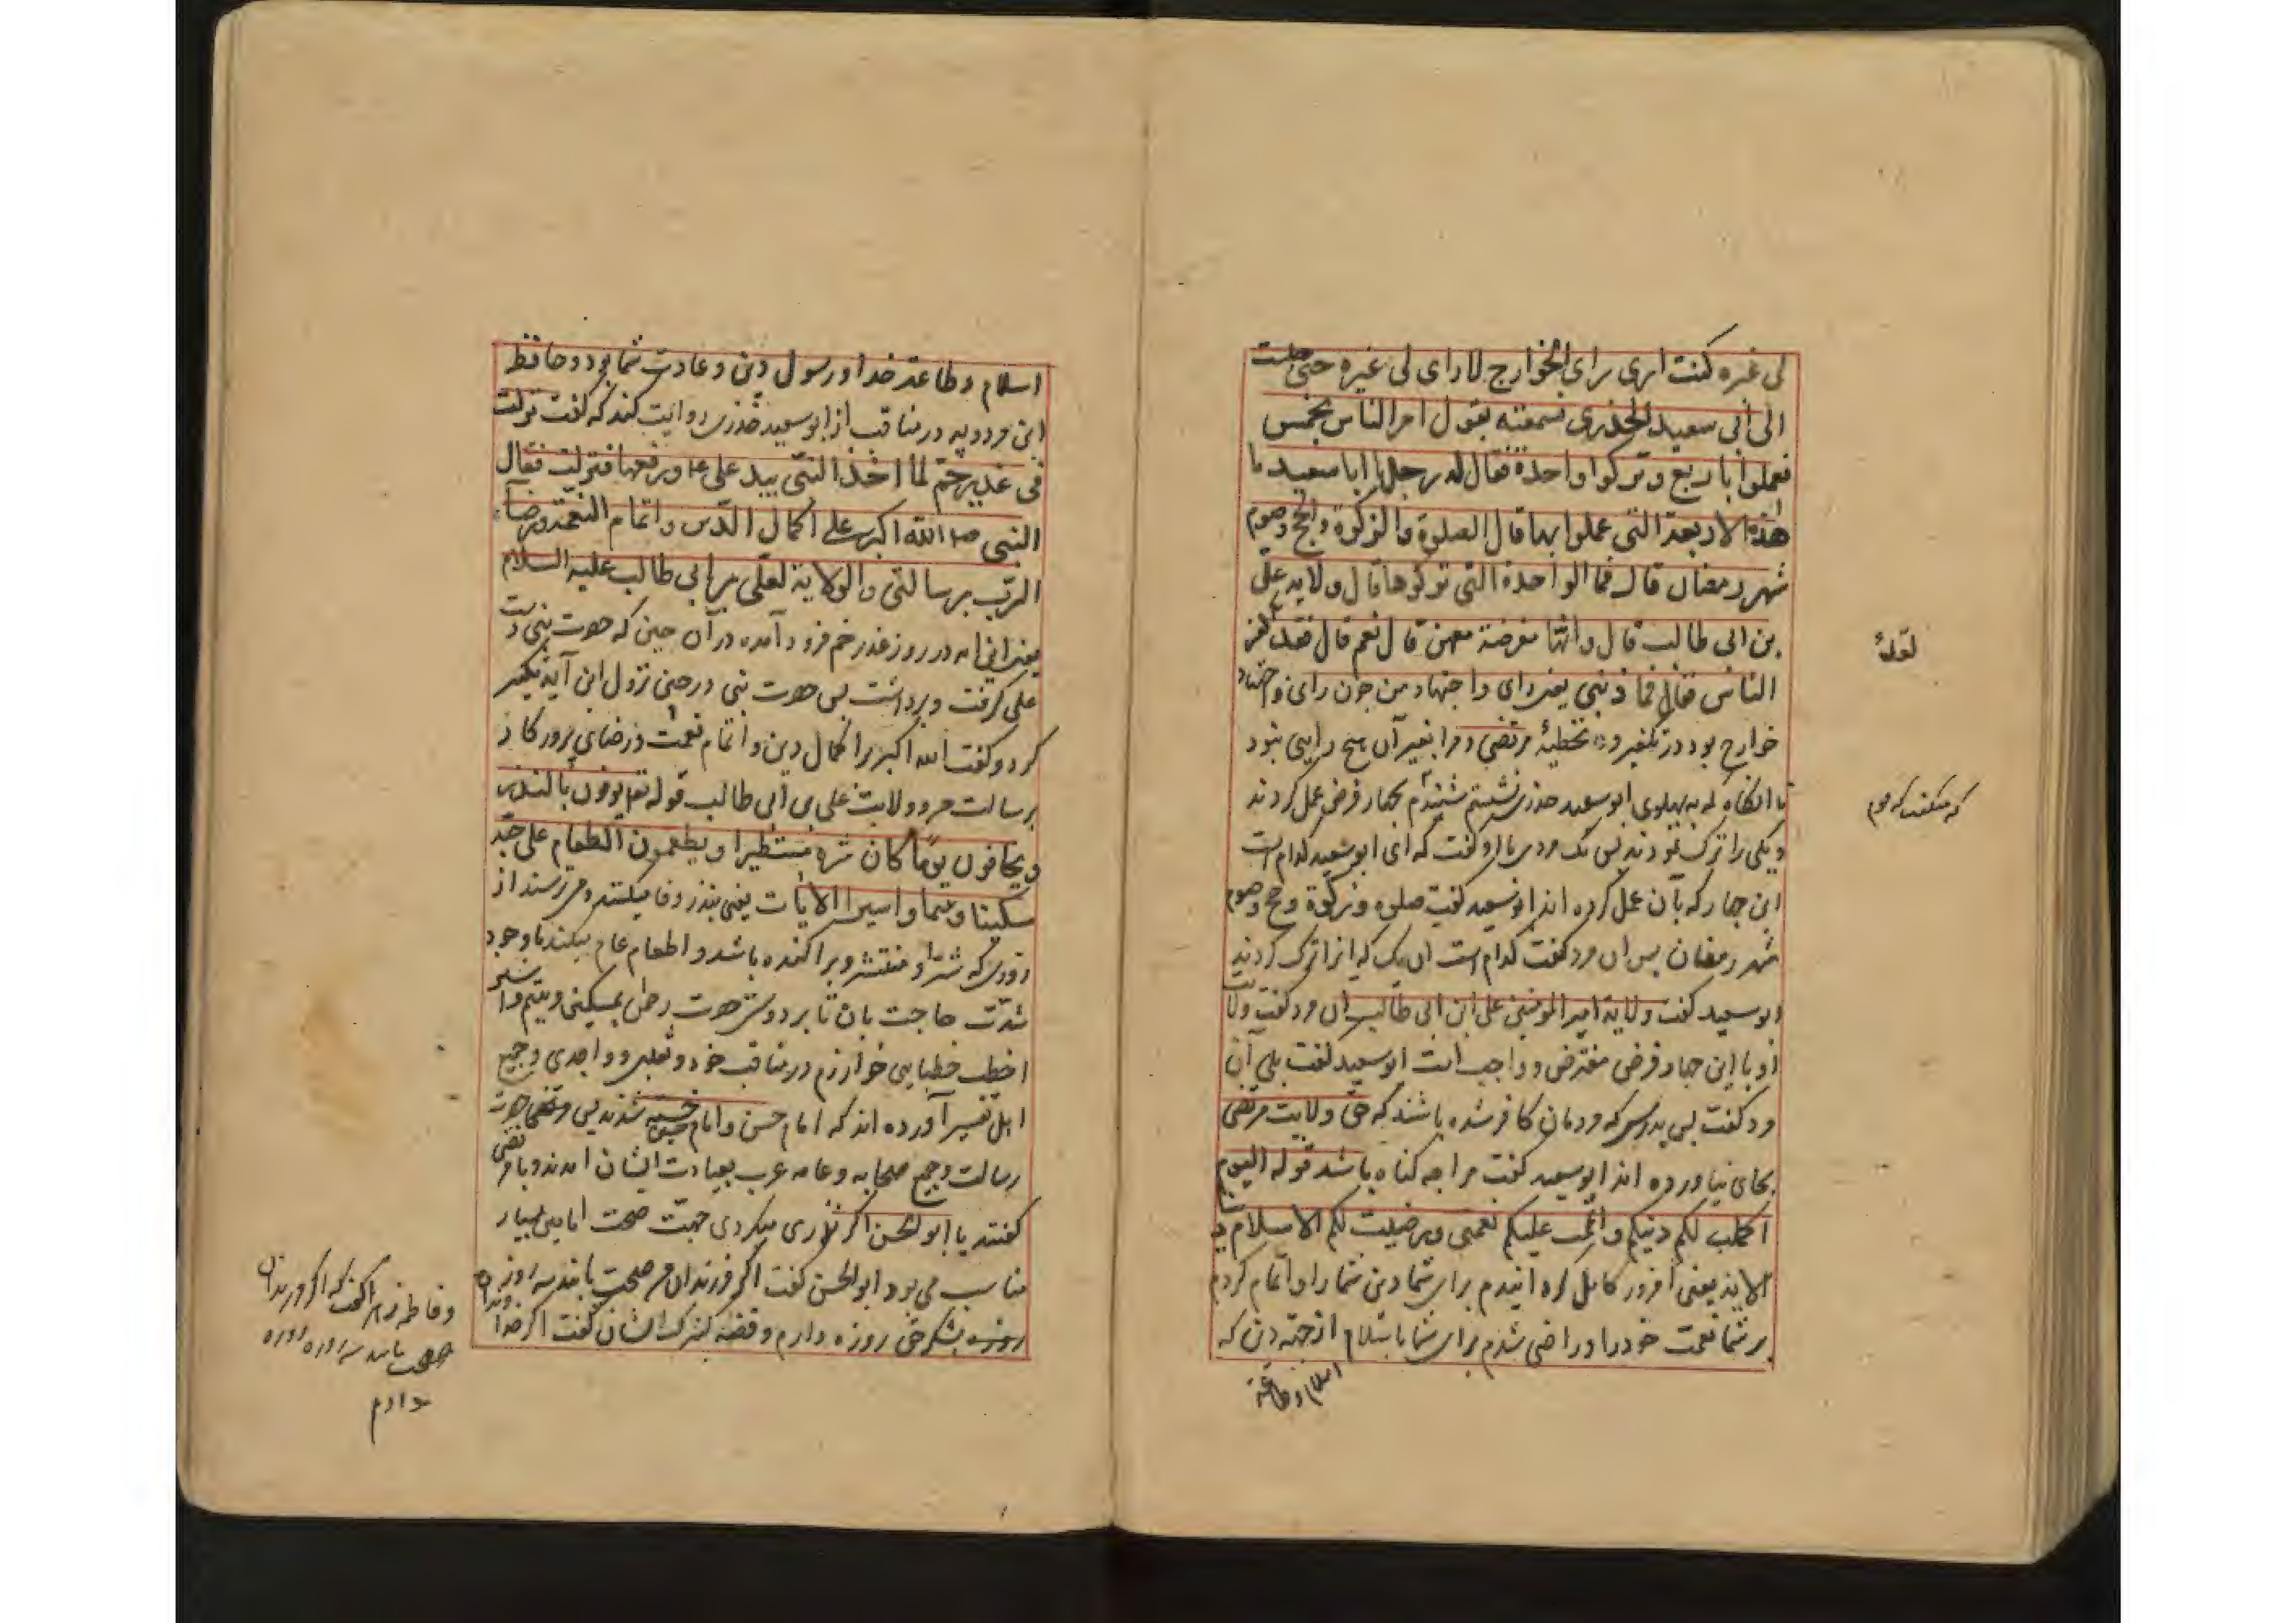 لی غیره کنت اری رای الخوارج لا رای لی غیره حتی جلست
الی ابی سعید الخدری فسمعته یقول امر الناس بخمس
فعملوا باربع و ترکوا واحدة فقال له رجل یا ابا سعید ما
هذه الاربعة التی عملوا بها قال الصلوة والزکوة والحج وصوم
شهر رمضان قال فما الواحدة التی ترکوها قال ولایه علی
بن ابی طالب قال وانها مفرضة معهن قال نعم قال فقد کفر
الناس فقال فما ذنبی یعنی رای و اجتهاد من چون رای و اجتهاد
خوارج بود در تکفیر و تخطیهٔ مرتضی و مرا بغیر آن هیچ رایی نبود
تا انکاه که به پهلوی ابو سعید خدری نشستم شنیدم بچهار فرض عمل کردند
که میکفت که مردم
و یکی را ترک نمودند پس یک مردی باو کفت که ای ابو سعید کدام است
این چهار که بآن عمل کرده اند ابو سعید کفت صلوة و زکوة و حج و صوم
شهر رمضان پس ان مرد کفت کدام است ان یک که انرا ترک کردند
ابو سعید کفت ولایة امیر المومنین علی ابن ابی طالب ان مرد کفت ولایت
او با این چهار فرض مفترض و واجب است ابو سعید کفت بلی آن
مرد کفت پس بدرستی که مردمان کافر شده باشند که حق ولایت مرتضی
بجای نیاورده اند ابو سعید کفت مرا چه کناه باشد قوله الیوم
اکملت لکم دینکم و اتممت علیکم نعمتی و رضیت لکم الاسلام دینا
الایة یعنی امروز کامل کردانیدم برای شما دین شما را و اتمام کردم
بر شما نعمت خود را و راضی شدم برای شما باسلام از جهة دین که
اسلام و طاعة
اسلام و طاعة خدا و رسول دین و عادت شما بود و حافظ
ابن مردویه در مناقب از ابو سعید خدری روایت کند که کفت نزلت
فی غدیر خم لما اخذ النبی بید علی و رفعها فنزلت فقال
النبی الله اکبر علی اکمال الدین و اتمام النعمة و رضاء
الرب برسالتی والولایة لعلی بن ابی طالب علیه السلام
یعنی این ایه در روز غدیر خم فرود آمده در آن حین که حضرت نبی دست
علی کرفت و برداشت پس حضرت نبی در حین نزول این آیه تکبیر
کرد و کفت الله اکبر بر اکمال دین و اتمام نعمت و رضای پرورکار
برسالت من و ولایت علی بن ابی طالب قوله تع یوفون بالنذر
و یخافون یوما کان شره مستطیرا و یطعمون الطعام علی حبه
مسکینا و یتیما و اسیرا الایات یعنی بنذر وفا میکنند و می ترسند از
روزی که شر او منتشر و پراکنده باشد و اطعام عام میکنند با وجود
شدت حاجت بان تا بر دوش حضرت رحمن بمسکین و یتیم و اسیر
اخطب خطبای خوارزم در مناقب خود و ثعلبی و واحدی و جمیع
اهل تفسیر آورده اند که امام حسن و امام حسین خسته شدند پس مرتضی حضرت
رسالت و جمیع صحابه و عامه عرب بعیادت ایشان امدند و با مرتضی
کفتند یا ابو الحسن اکر نذری میکردی جهت صحت امامین بسیار
مناسب می بود ابو الحسن کفت اکر فرزندان مرا صحت یابند سه روز
روزه بشکر حق روزه دارم و فضه کنیزک ایشان کفت اکر خدا
و فاطمه زهرا کفت که اکر فرزندان
صحت یابند سه روزه روزه
دارم